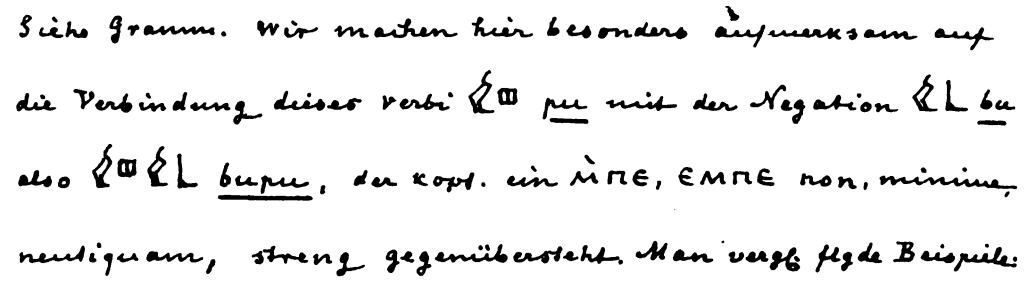 Siehe Gramm. Wir machen hier besonders aufmerksam auf
die Verbindung dieses verbi pu mit der Negation bu
also bupu, der kopt. ein ⲘⲠⲈ, ⲈⲘⲠⲈ non, minime,
neutiquam, streng gegenübersteht. Man vergl. flgde Beispiele: